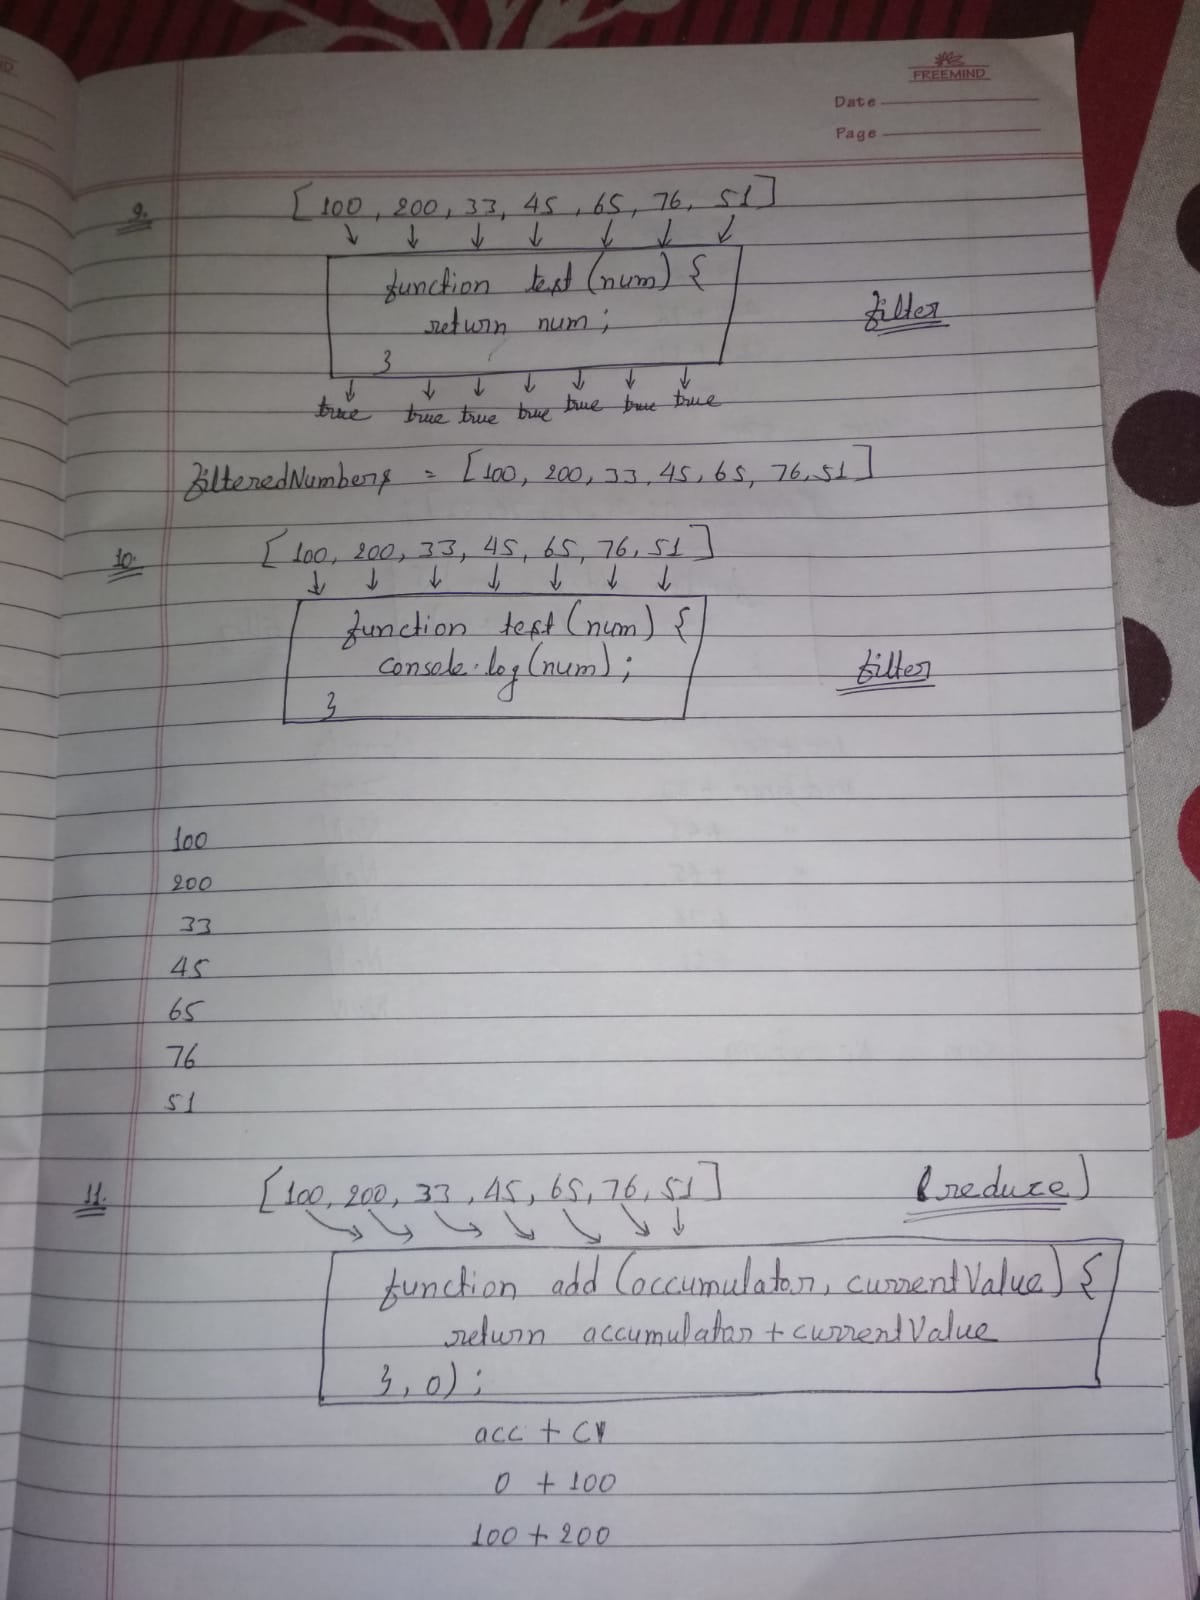 FREEMIND
Date
Page
9. [100, 200, 33, 45, 65, 76, 51]
↓ ↓ ↓ ↓ ↓ ↓ ↓
function test (num) {
return num;
}
filter
↓ ↓ ↓ ↓ ↓ ↓ ↓
true true true true true true true
filteredNumbers = [100, 200, 33, 45, 65, 76, 51]
10. [100, 200, 33, 45, 65, 76, 51]
↓ ↓ ↓ ↓ ↓ ↓ ↓
function test (num) {
console.log(num);
}
filter
100
200
33
45
65
76
51
11. [100, 200, 33, 45, 65, 76, 51] (reduce)
function add (accumulator, currentValue) {
return accumulator + currentValue
}, 0);
acc + CV
0 + 100
100 + 200